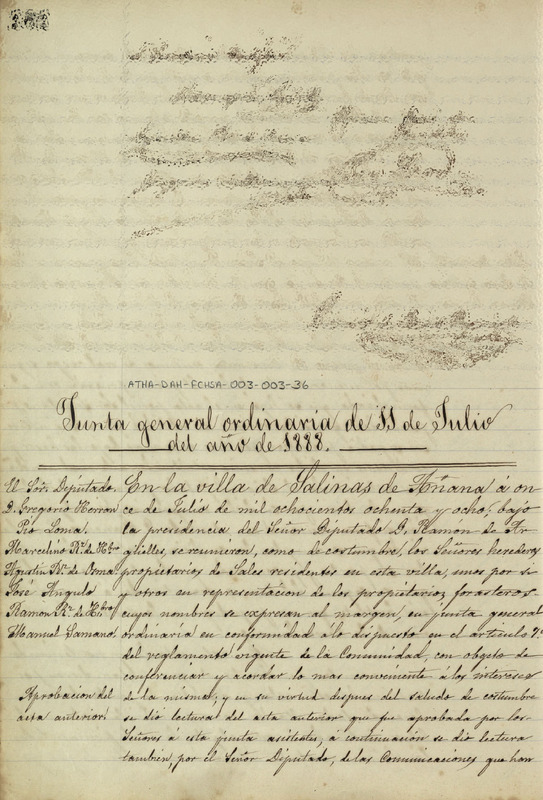 ATHA-DAH-FCHSA-003-003-36
Junta general ordinaria de 11 de Julio
del año de 1888.
El Sor. Diputado.
D. Gregorio Herran
Pio Loma.
Marcelino Rz. de
Agustin Rz. de Loma
José Angulo
Ramon Rz. de
Manuel Samano.
Aprobacion del
acta anterior.
En la villa de Salinas de Añana á on
ce de Julio de mil ochocientos ochenta y ocho, bajo
la presidencia del Señor Diputado D. Ramon de Ar
güelles, se reunieron, como de costumbre, los Señores herederos
propietarios de Sales residentes en esta villa, unos por si
y otros en representacion de los propietarios forasteros
cuyos nombres se expresan al margen, en junta general
ordinaria en conformidad á lo dispuesto en el articulo 7º
del reglamento vigente de la Comunidad, con objeto de
conferenciar y acordar lo mas conveniente á los intereses
de la misma; y en su virtud despues del saludo de costumbre
se dió lectura del acta anterior que fue aprobada por los
Señores á esta junta asistentes; á continuacion se dió lectura
tambien, por el Señor Diputado, de las Comunicaciones que han